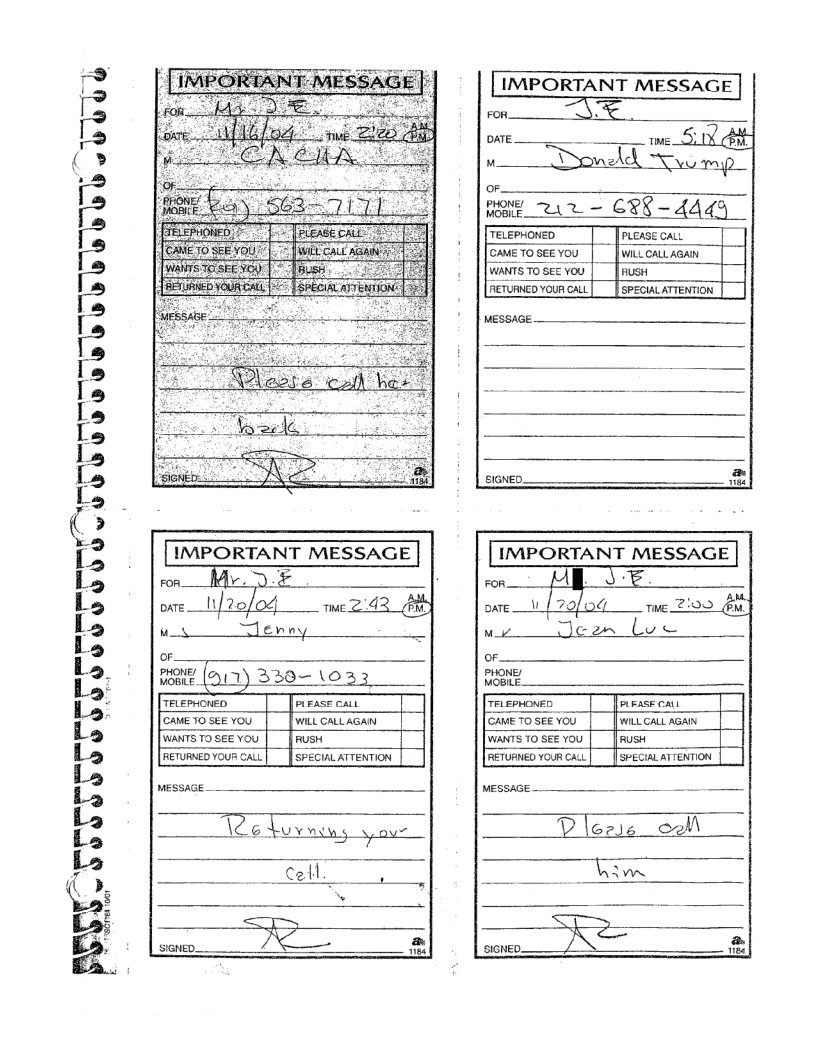 IMPORTANT MESSAGE
FOR Mr J E.
DATE 11/16/04 TIME 2:20 A.M. P.M.
M CACHA
OF
PHONE/ MOBILE 563-7171
TELEPHONED PLEASE CALL
CAME TO SEE YOU WILL CALL AGAIN
WANTS TO SEE YOU RUSH
RETURNED YOUR CALL SPECIAL ATTENTION
MESSAGE
Please call her
back
SIGNED
1184
IMPORTANT MESSAGE
FOR J.E.
DATE TIME 5:18 A.M. P.M.
M Donald Trump
OF
PHONE/ MOBILE 212-688-4449
TELEPHONED PLEASE CALL
CAME TO SEE YOU WILL CALL AGAIN
WANTS TO SEE YOU RUSH
RETURNED YOUR CALL SPECIAL ATTENTION
MESSAGE
SIGNED
1184
IMPORTANT MESSAGE
FOR Mr. J.E
DATE 11/20/04 TIME 2:43 A.M. P.M.
M Jenny
OF
PHONE/ MOBILE (917) 330-1033
TELEPHONED PLEASE CALL
CAME TO SEE YOU WILL CALL AGAIN
WANTS TO SEE YOU RUSH
RETURNED YOUR CALL SPECIAL ATTENTION
MESSAGE
Returning your
call.
SIGNED
1184
IMPORTANT MESSAGE
FOR M . J.E.
DATE 11/20/04 TIME 2:00 A.M. P.M.
M r Jean Luc
OF
PHONE/ MOBILE
TELEPHONED PLEASE CALL
CAME TO SEE YOU WILL CALL AGAIN
WANTS TO SEE YOU RUSH
RETURNED YOUR CALL SPECIAL ATTENTION
MESSAGE
Please call
him
SIGNED
1184